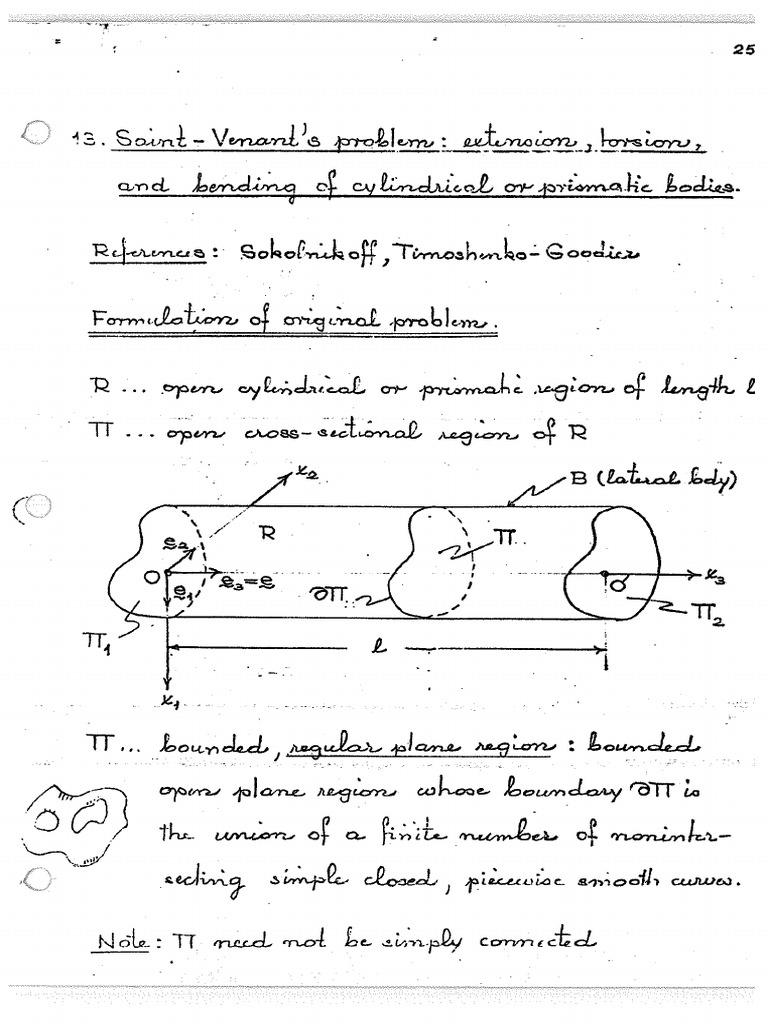 25
13. Saint-Venant's problem: extension, torsion,
and bending of cylindrical or prismatic bodies.
References: Sokolnikoff, Timoshenko-Goodier
Formulation of original problem.
R ... open cylindrical or prismatic region of length l
Π ... open cross-sectional region of R
x₂
B (lateral bdy)
R
Π
e₂
O
e₃=e
e₁
∂Π
O'
x₃
Π₁
Π₂
l
x₁
Π... bounded, regular plane region: bounded
open plane region whose boundary ∂Π is
the union of a finite number of noninter-
secting simple closed, piecewise smooth curves.
Note: Π need not be simply connected